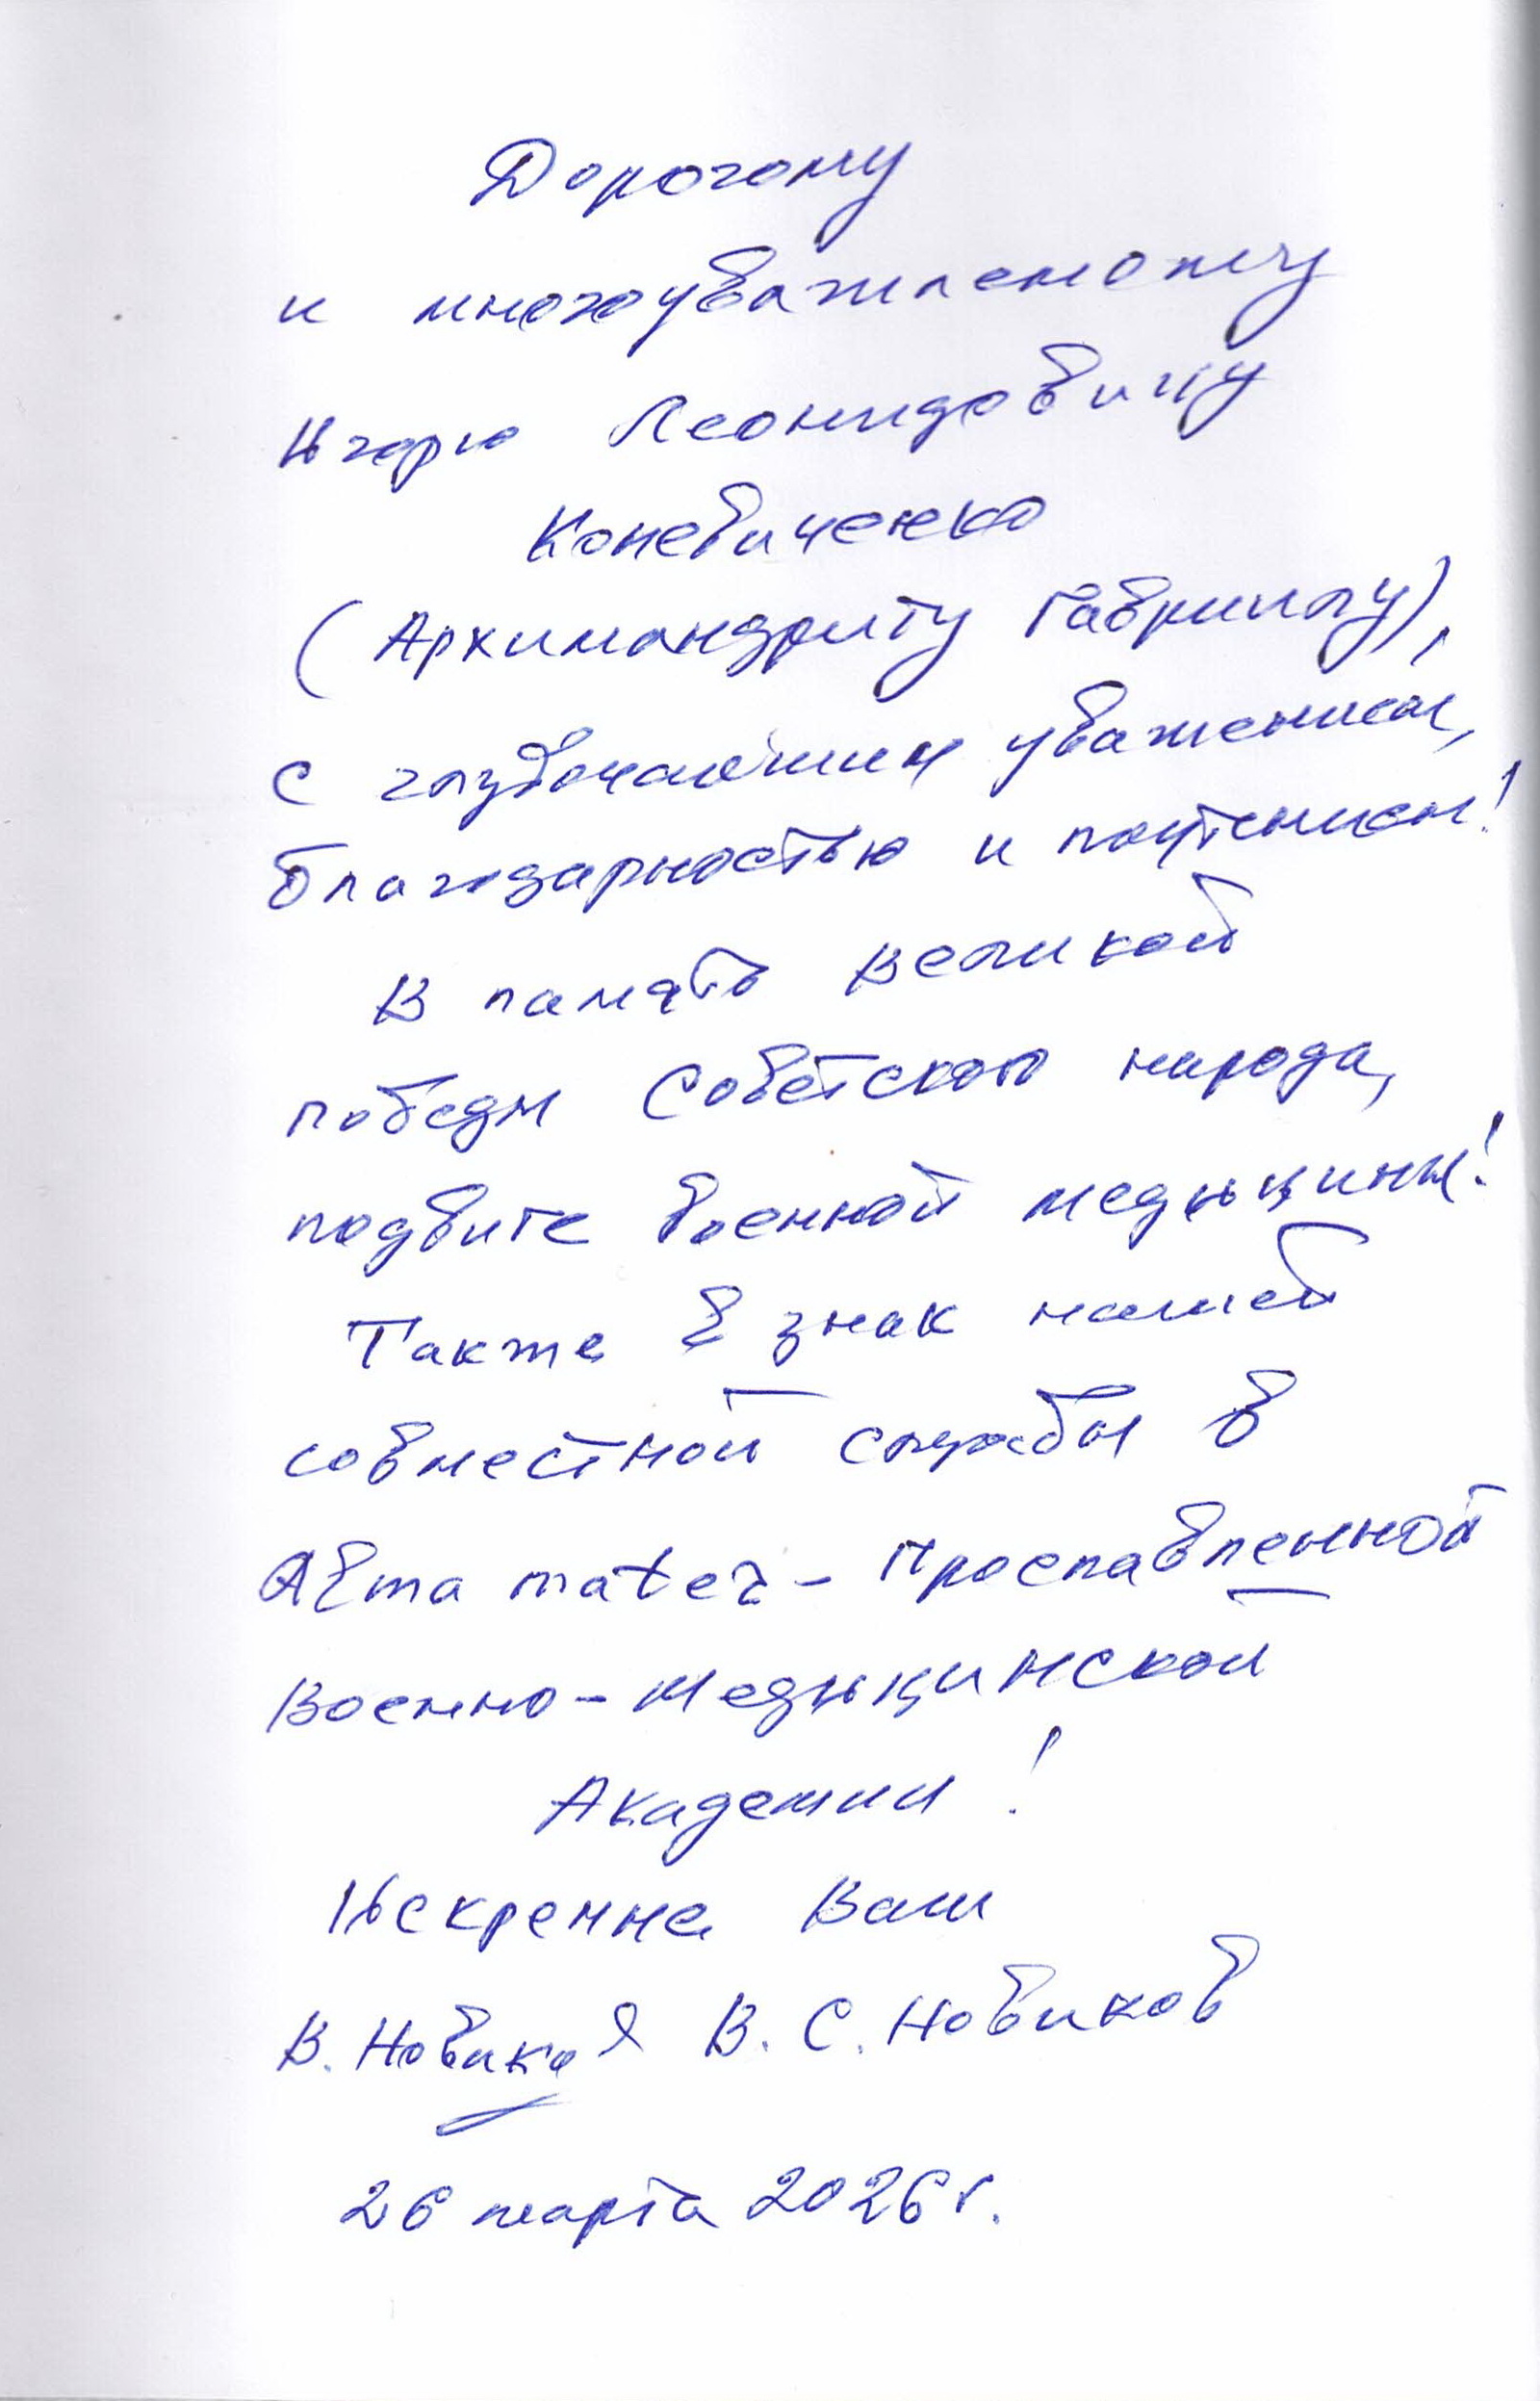 Дорогому
и многоуважаемому
Игорю Леонидовичу
Коневиченко
(Архимандриту Гавриилу),
с глубочайшим уважением,
благодарностью и почтением!
В память Великой
победы Советского народа,
подвиге военной медицины!
Также в знак нашей
совместной службы в
Alma mater - Прославленной
Военно-Медицинской
Академии!
Искренне Ваш
В. Новиков В. С. Новиков
26 марта 2026 г.